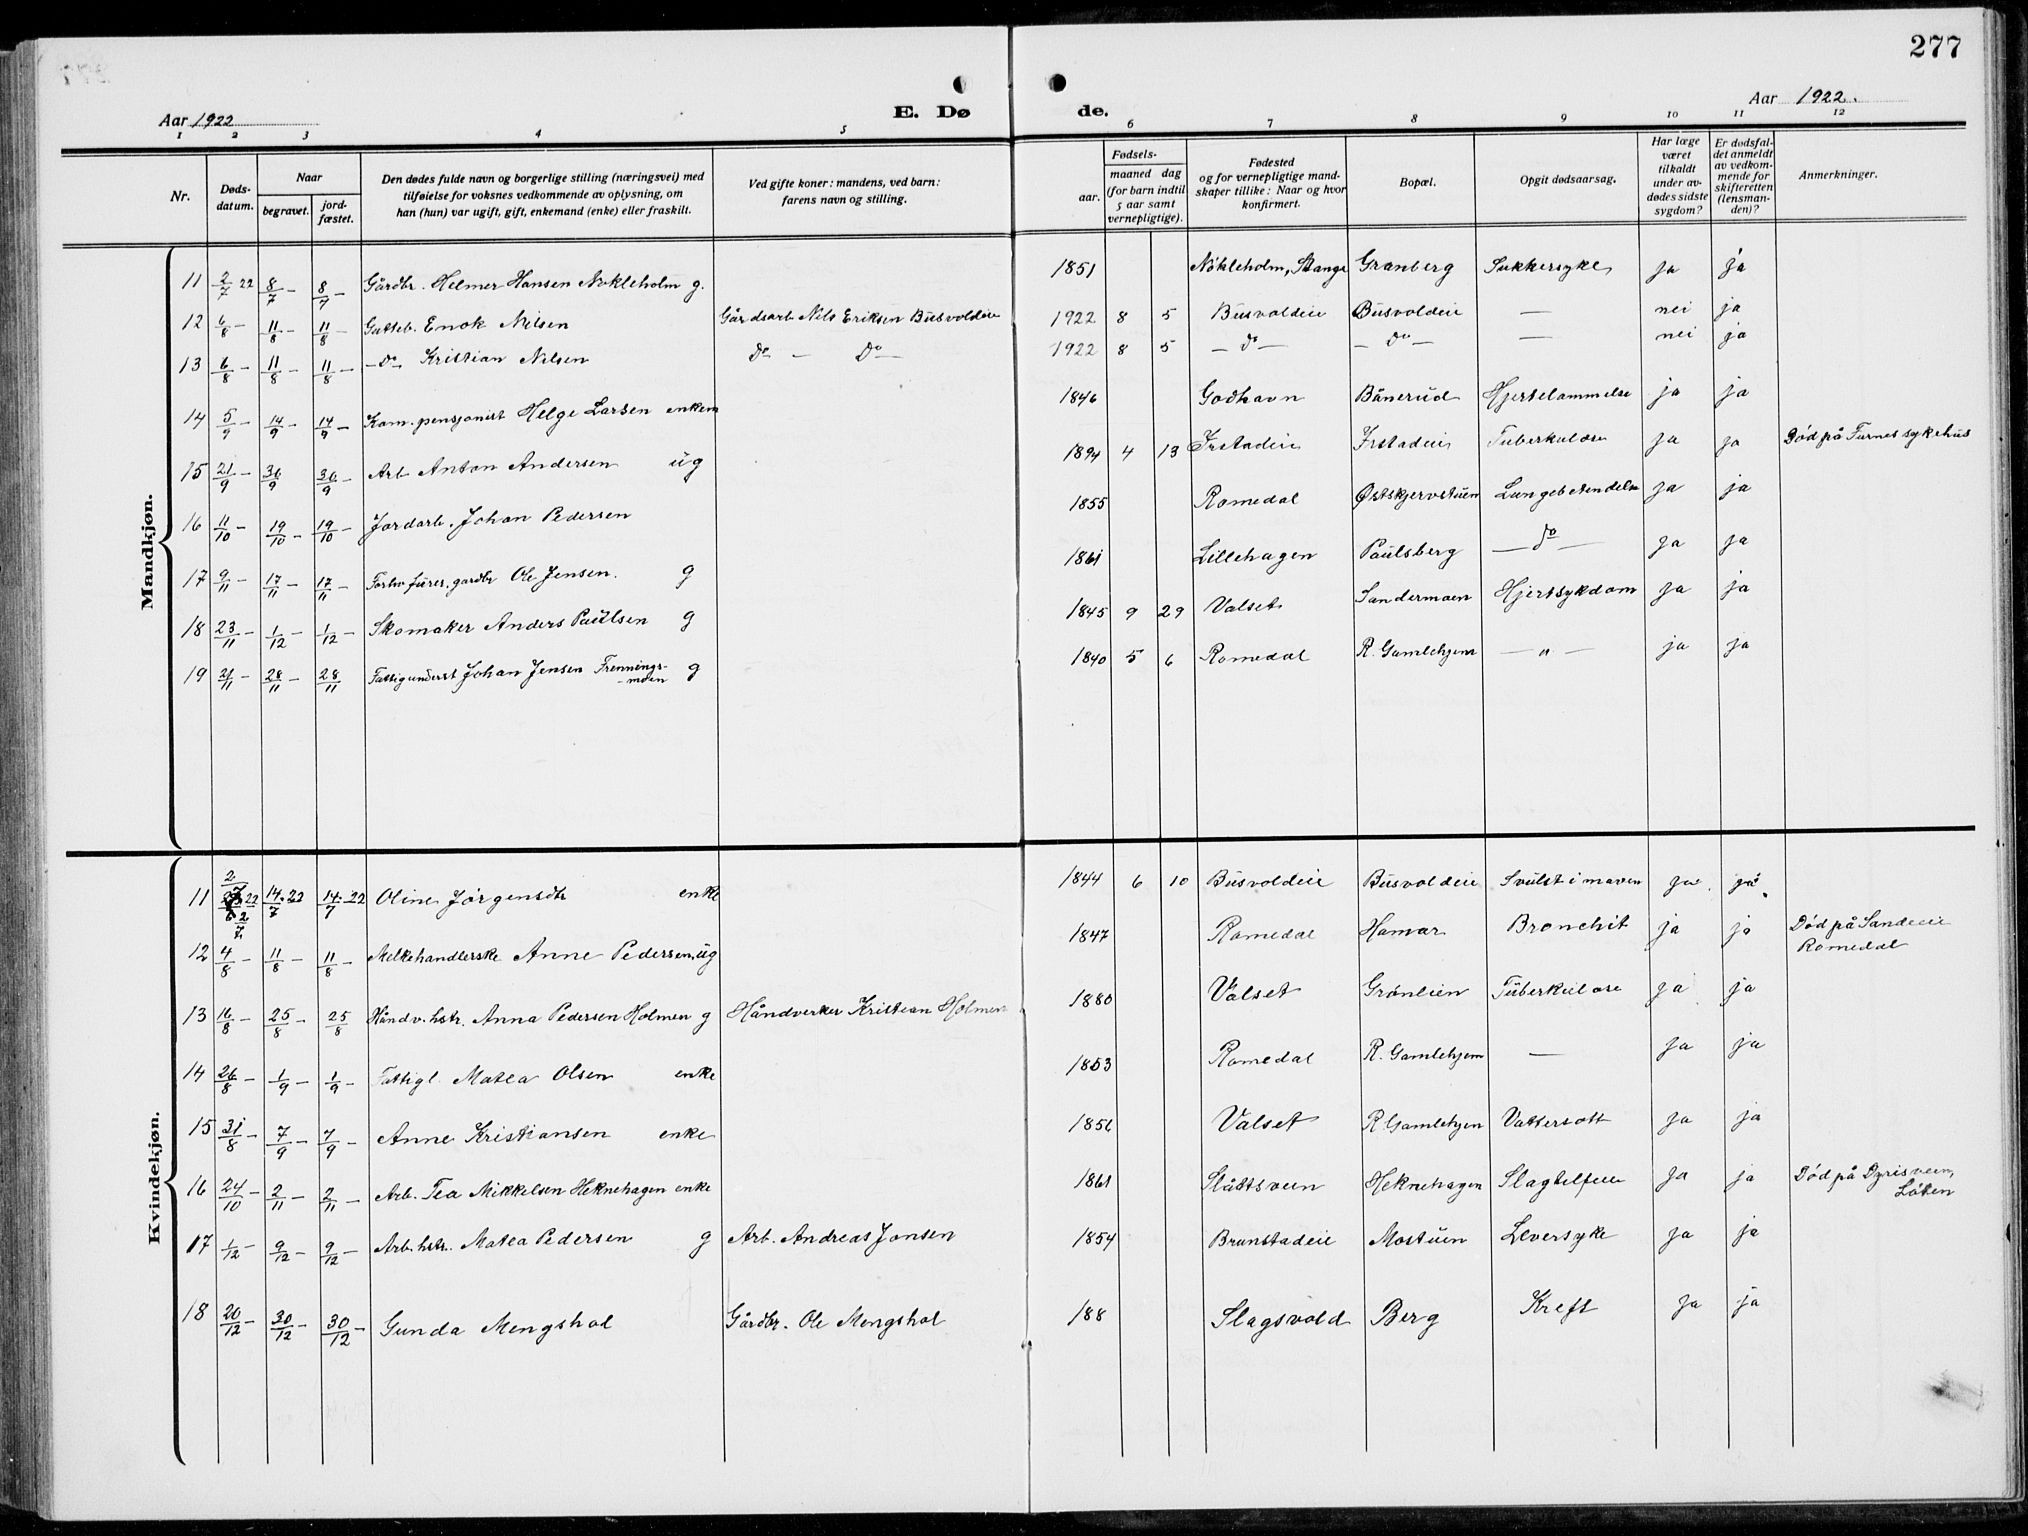 277
Aar 1922
E. Dø
de.
Aar 1922.
1 2 3 4 5 6 7 8 9 10 11 12
Nr.
Døds-
datum.
Naar
begravet.
jord-
fæstet.
Den dødes fulde navn og borgerlige stilling (næringsvei) med
tilføielse for voksnes vedkommende av oplysning, om
han (hun) var ugift, gift, enkemand (enke) eller fraskilt.
Ved gifte koner: mandens, ved barn:
farens navn og stilling.
Fødsels-
aar.
maaned dag
(for barn indtil
5 aar samt
vernepligtige).
Fødested
og for vernepligtige mand-
skaper tillike: Naar og hvor
konfirmert.
Bopæl.
Opgit dødsaarsag.
Har læge
været
tilkaldt
under av-
dødes sidste
sygdom?
Er dødsfal-
det anmeldt
av vedkom-
mende for
skifteretten
(lensman-
den)?
Anmerkninger.
Mandkjøn.
11 2/7 22 8/7 – 8/7 – Gårdbr. Helmer Hansen Nøkleholm g. 1851 Nökleholm, Stange Granberg Sukkersyke ja ja
12 6/8 – 11/8 – 11/8 – Gutteb. Enok Nilsen Gårdsarb. Nils Eriksen Busvoldeie 1922 8 5 Busvoldeie Busvoldeie — nei ja
13 6/8 – 11/8 – 11/8 – – Do – Kristian Nilsen Do – Do – 1922 8 5 – do – – do – — nei ja
14 5/9 – 14/9 – 14/9 – Kom. pensjonist Helge Larsen enkem 1846 Godhavn Bånerud Hjertelammelse ja ja
15 21/9 – 30/9 30/9 – Arb Anton Andersen ug 1894 4 13 Irstadeie Irstadeie Tuberkulose ja ja Död på Furnes sykehus
16 11/10 – 19/10 – 19/10 – Jordarb. Johan Pedersen 1855 Romedal Østskjervstuen Lungebetendelse ja ja
17 9/11 – 17/11 – 17/11 – Forhv furer, gardbr Ole Jensen. g 1861 Lillehagen Paulsberg – do – ja ja
18 23/11 – 1/12 – 1/12 – Skomaker Anders Paulsen g 1845 9 29 Valset Sandermoen Hjertsykdom ja ja
19 21/11 – 28/11 – 28/11 Fattigunderst Johan Jensen Frennings-
moen g 1840 5 6 Romedal R. Gamlehjem – " – ja ja
Kvindekjøn.
11 2/7 22 14/7 22 14/7 22 Oline Jörgensdtr enke 1844 6 10 Busvoldeie Busvoldeie Svulst i maven ja ja
12 4/8 – 11/8 – 11/8 – Melkehandlerske Anne Pedersen, ug 1847 Romedal Hamar Bronchit ja ja Död på Sandeeie
Romedal
13 16/8 – 25/8 – 25/8 Håndv. hstr. Anna Pedersen Holmen g Håndverker Kristian Holmen 1880 Valset Grønlien Tuberkulose ja ja
14 26/8 – 1/9 – 1/9 – Fattigl. Matea Olsen enke 1853 Romedal R. Gamlehjem — ja ja
15 31/8 – 7/9 – 7/9 – Anne Kristiansen enke 1856 Valset R Gamlehjem Vattersott ja ja
16 24/10 – 2/11 – 2/11 – Arb. Tea Mikkelsen Heknehagen enke 1861 Slåttsveen Heknehagen Slagtilfelle ja ja Död på Dyrisveen,
Löten
17 1/12 – 9/12 – 9/12 – Arb. hstr. Matea Pedersen g Arb. Andreas Jonsen 1854 Brunstadeie Mostuen Leversyke ja ja
18 20/12 – 30/12 – 30/12 – Gunda Mengshol Gårdbr. Ole Mengshol 188 Slagsvold Berg Kreft ja ja